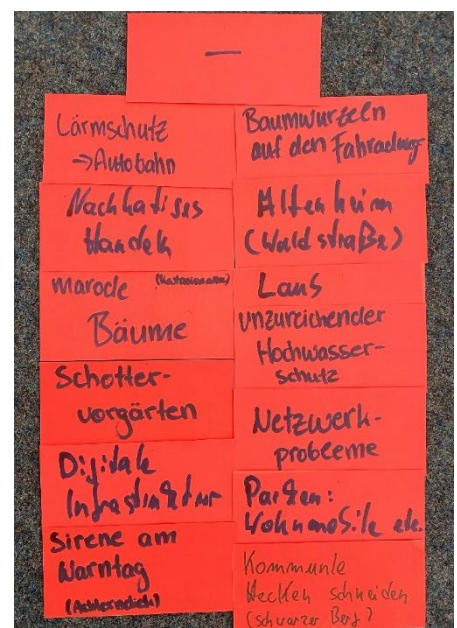 —
Lärmschutz
→Autobahn
Nachhatiges
Handeln
marode
Bäume
Schotter-
vorgärten
Digitale
Infrastruktur
Sirene am
Warntag
(Achterndiek)
Baumwurzeln
auf den Fahrradweg
Altenheim
(Waldstraße)
unzureichender
Hochwasser-
schutz
Netzwerk-
probleme
Parken:
Wohnmobile etc.
Kommunle
Hecken schneiden
(schwarzer Berg)